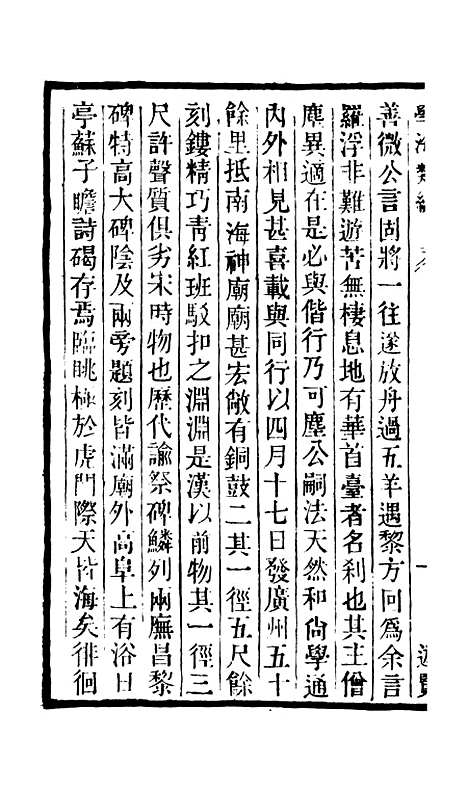 善微公言固將一往遂放舟過五羊遇黎方回爲余言
羅浮非難遊苦無棲息地有華首臺者名刹也其主僧
塵異適在是必與偕行乃可塵公嗣法天然和尙學通
內外相見甚喜載與同行以四月十七日發廣州五十
餘里抵南海神廟廟甚宏敞有銅鼓二其一徑五尺餘
刻鏤精巧靑紅班駁扣之淵淵是漢以前物其一徑三
尺許聲質俱劣宋時物也歷代諭祭碑鱗列兩廡昌黎
碑特高大碑陰及兩旁題刻皆滿廟外高阜上有浴日
亭蘇子瞻詩碣存焉臨眺極於虎門際天皆海矣徘徊